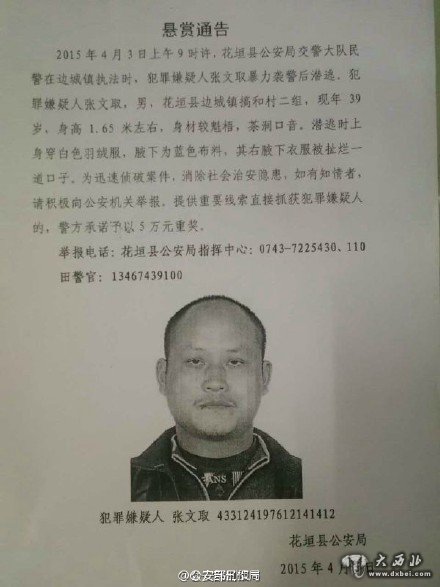 悬赏通告
2015年4月3日上午9时许,花垣县公安局交警大队民
警在边城镇执法时,犯罪嫌疑人张文取暴力袭警后潜逃。犯
罪嫌疑人张文取,男,花垣县边城镇搞和村二组,现年39
岁,身高1.65米左右,身材较魁梧,茶洞口音。潜逃时上
身穿白色羽绒服,腋下为蓝色布料,其右腋下衣服被扯烂一
道口子。为迅速侦破案件,消除社会治安隐患,如有知情者,
请积极向公安机关举报。提供重要线索直接抓获犯罪嫌疑人
的,警方承诺予以5万元重奖。
举报电话:花垣县公安局指挥中心:0743-7225430、110
田警官:13467439100
犯罪嫌疑人 张文取 433124197612141412
花垣县公安局
2015年4月 日
大西北
www.dxbei.com